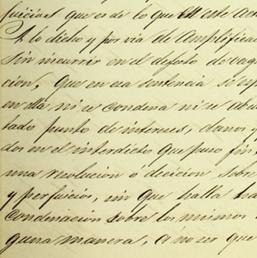 juicios que es de lo que en este
A lo dicho y por via de Amplifica
Sin incurrir en el defecto de vag
cion, que en esa sentencia si es
en ella ni se condena ni se absu
tado punto de intereses, danos y
dos en el interdicto que puso fin
una resolucion ó decicion sobre
y perjuicios, sin que halla
Condenacion sobre los mismos
guna manera, á no ser que